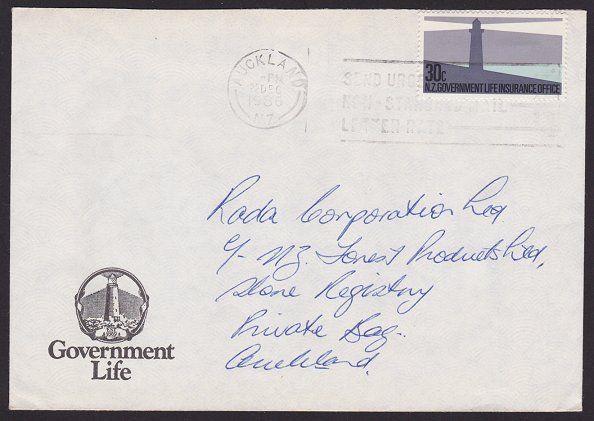 AUCKLAND
-PM
DEC
1986
N.Z.
SEND URG
NON-STAND
LETTER RATE
30c
N.Z. GOVERNMENT LIFE INSURANCE OFFICE
Rada Corporation Ltd
C/- NZ. Forest Products Ltd,
Share Registry
Private Bag.
Auckland.
Government
Life